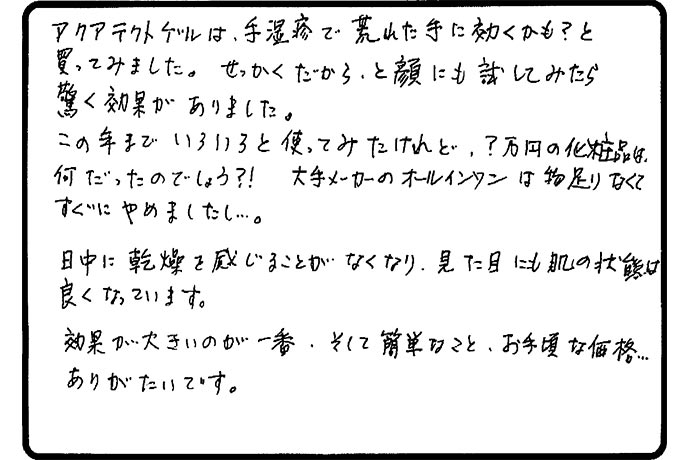 アクアテクトゲルは、手湿疹で荒れた手に効くかも?と
買ってみました。せっかくだから、と顔にも試してみたら
驚く効果がありました。
この年までいろいろと使ってみたけれど、?万円の化粧品は、
何だったのでしょう?! 大手メーカーのオールインワンは物足りなくて
すぐにやめましたし…。
日中に乾燥を感じることがなくなり、見た目にも肌の状態は
良くなっています。
効果が大きいのが一番、そして簡単なこと、お手頃な価格…
ありがたいです。